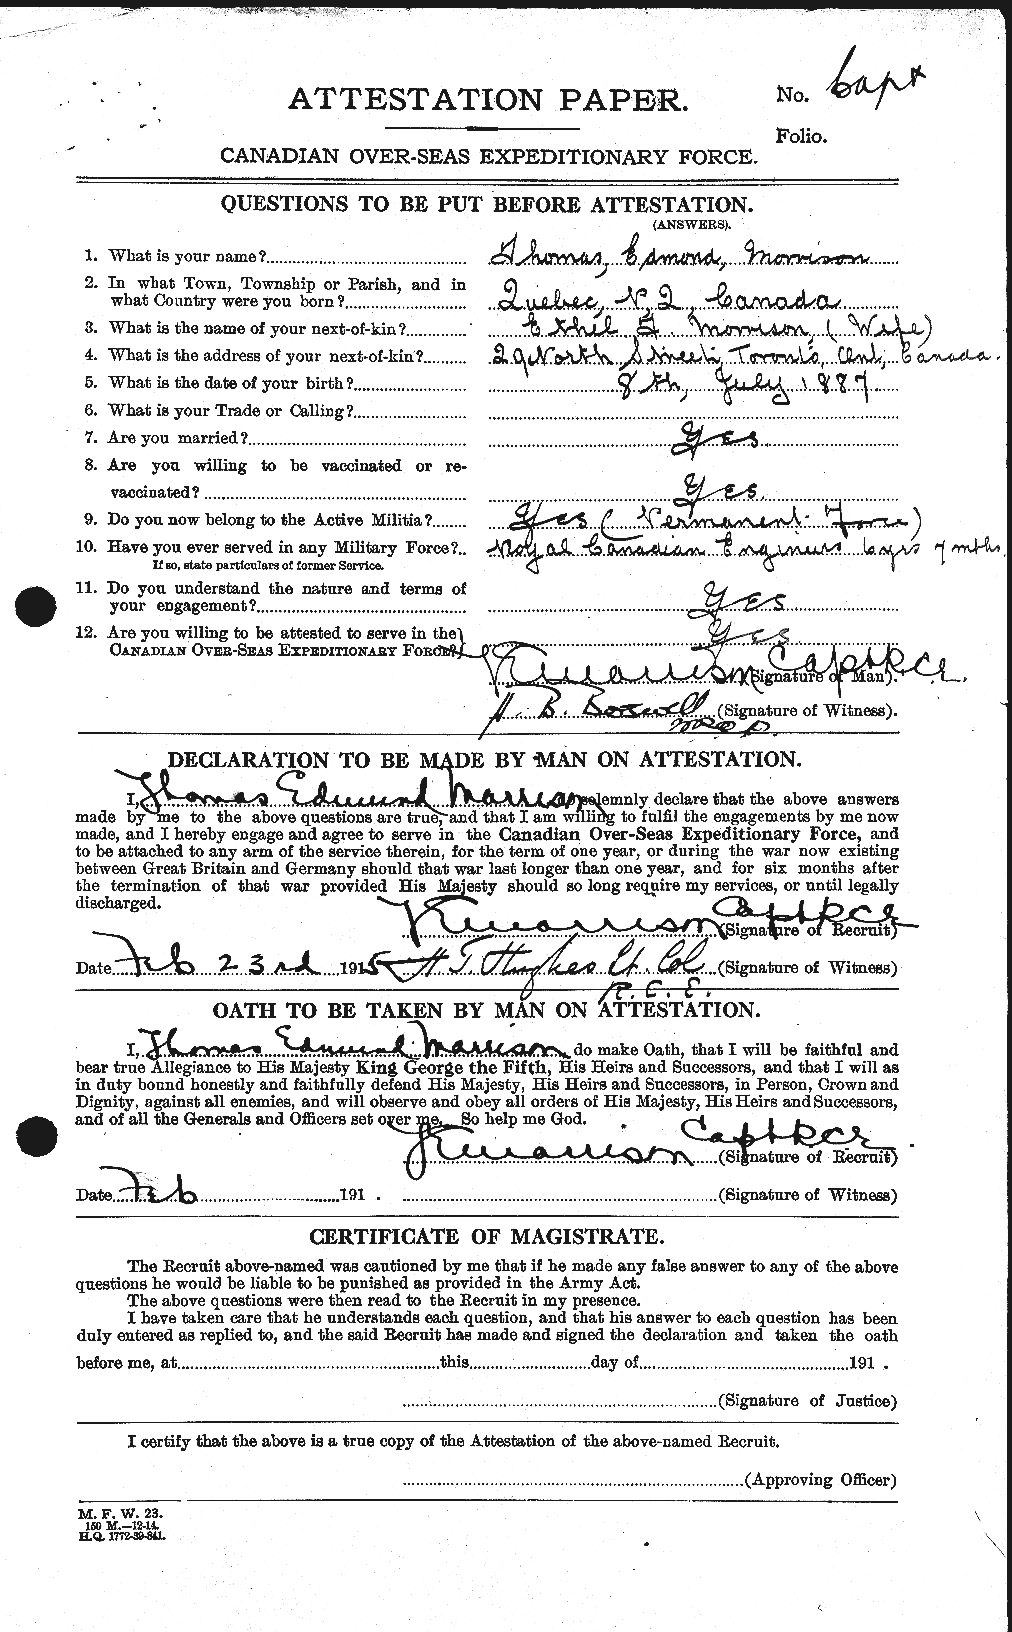 No. Capt
ATTESTATION PAPER.
Folio.
CANADIAN OVER-SEAS EXPEDITIONARY FORCE.
QUESTIONS TO BE PUT BEFORE ATTESTATION.
(ANSWERS).
1. What is your name? Thomas, Edmond, Morrison
2. In what Town, Township or Parish, and in
what Country were you born? Quebec, P.Q. Canada
3. What is the name of your next-of-kin? Ethil F. Morrison, (Wife)
4. What is the address of your next-of-kin? 29 North Street, Toronto, Ont, Canada.
5. What is the date of your birth? 8th, July 1887
6. What is your Trade or Calling?
7. Are you married? Yes
8. Are you willing to be vaccinated or re-
vaccinated? Yes.
9. Do you now belong to the Active Militia? Yes (Permanent Force)
10. Have you ever served in any Military Force? Royal Canadian Engineers 6 yrs 7 mths.
If so, state particulars of former Service.
11. Do you understand the nature and terms of
your engagement? Yes
12. Are you willing to be attested to serve in the Yes
CANADIAN OVER-SEAS EXPEDITIONARY FORCE?
Morrison Capt RCE. (Signature of Man).
H. B. Boswell (Signature of Witness).
DECLARATION TO BE MADE BY MAN ON ATTESTATION.
I, Thomas Edmund Morrison, do solemnly declare that the above answers
made by me to the above questions are true, and that I am willing to fulfil the engagements by me now
made, and I hereby engage and agree to serve in the Canadian Over-Seas Expeditionary Force, and
to be attached to any arm of the service therein, for the term of one year, or during the war now existing
between Great Britain and Germany should that war last longer than one year, and for six months after
the termination of that war provided His Majesty should so long require my services, or until legally
discharged.
Morrison Capt RCE (Signature of Recruit)
Date Feb 23rd 1915 H T Hughes Lt. Col (Signature of Witness)
R. C. E.
OATH TO BE TAKEN BY MAN ON ATTESTATION.
I, Thomas Edmund Morrison, do make Oath, that I will be faithful and
bear true Allegiance to His Majesty King George the Fifth, His Heirs and Successors, and that I will as
in duty bound honestly and faithfully defend His Majesty, His Heirs and Successors, in Person, Crown and
Dignity, against all enemies, and will observe and obey all orders of His Majesty, His Heirs and Successors,
and of all the Generals and Officers set over me. So help me God.
Morrison Capt RCE (Signature of Recruit)
Date Feb 191 . (Signature of Witness)
CERTIFICATE OF MAGISTRATE.
The Recruit above-named was cautioned by me that if he made any false answer to any of the above
questions he would be liable to be punished as provided in the Army Act.
The above questions were then read to the Recruit in my presence.
I have taken care that he understands each question, and that his answer to each question has been
duly entered as replied to, and the said Recruit has made and signed the declaration and taken the oath
before me, at this day of 191 .
(Signature of Justice)
I certify that the above is a true copy of the Attestation of the above-named Recruit.
(Approving Officer)
M. F. W. 23.
150 M.—12-14.
H.Q. 1772-39-841.